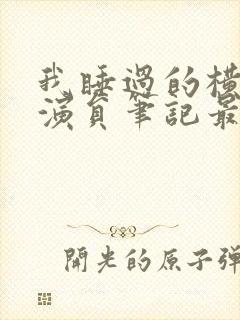 我睡過的横
演員筆記最
開光的原子弹